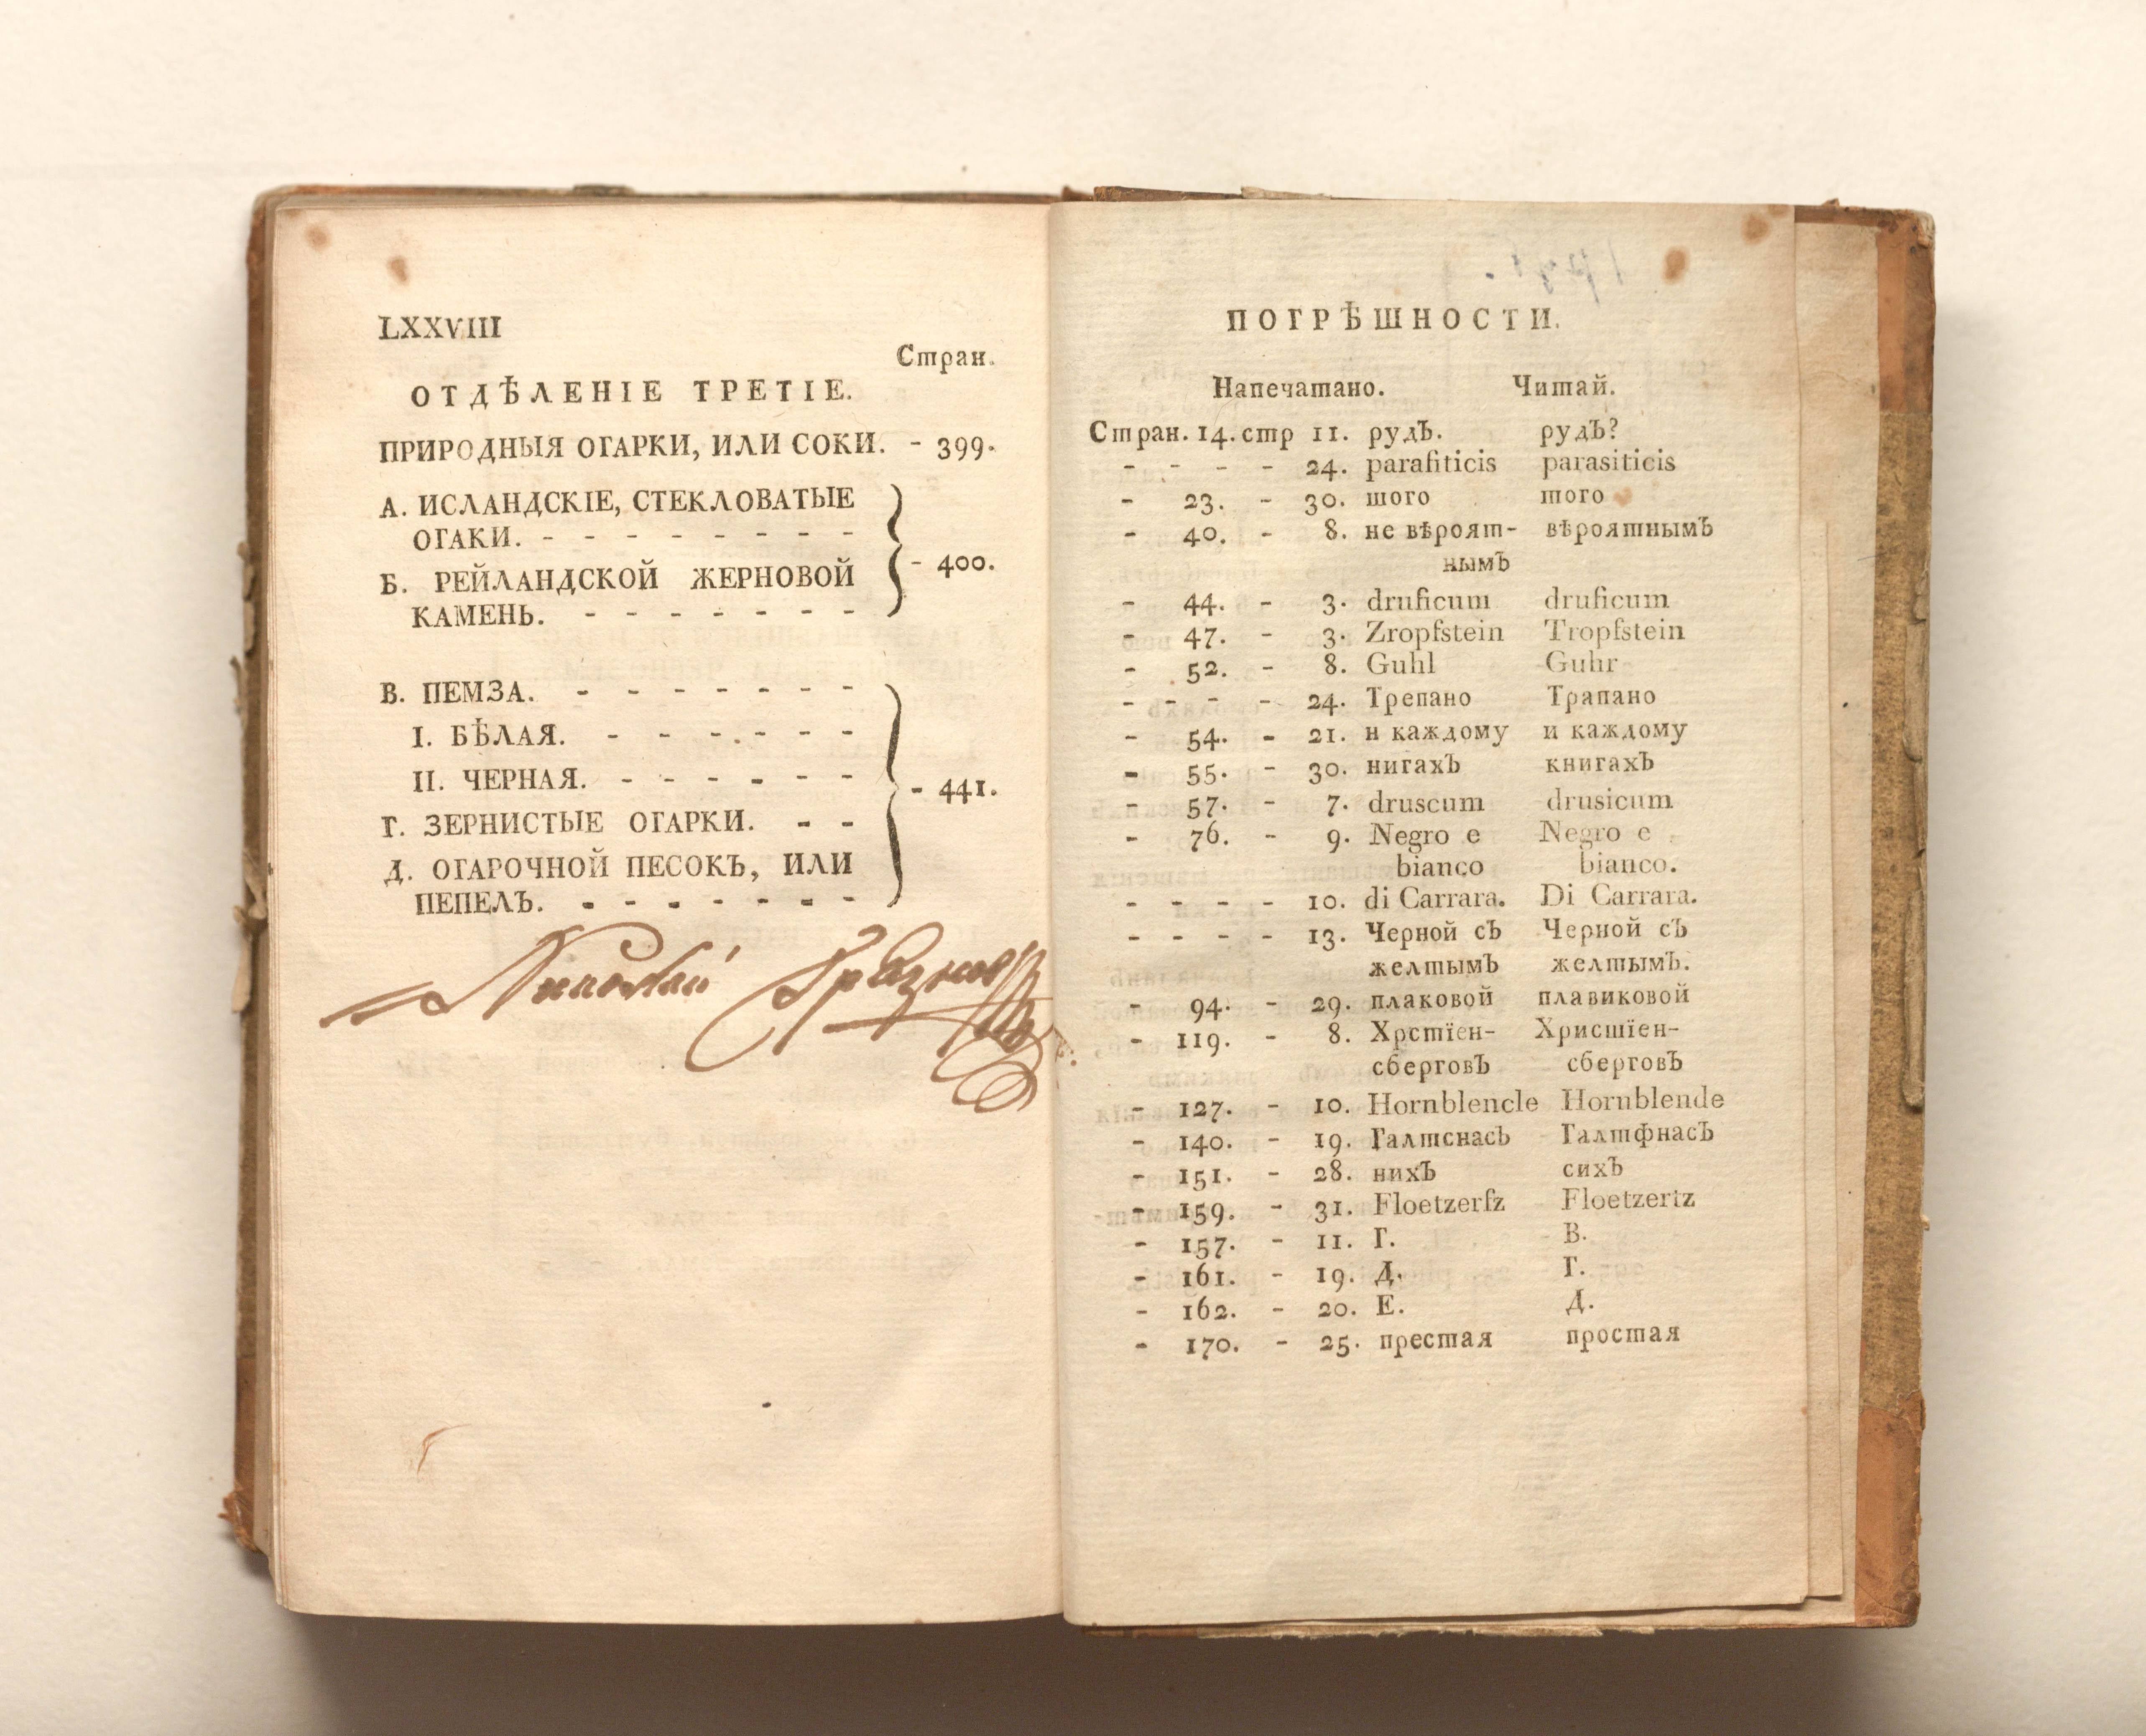 LXXVIII
Стран.
ОТДѢЛЕНІЕ ТРЕТІЕ.
ПРИРОДНЫЯ ОГАРКИ, ИЛИ СОКИ. - 399.
А. ИСЛАНДСКІЕ, СТЕКЛОВАТЫЕ
ОГАКИ. - - - - - - - -
- 400.
Б. РЕЙЛАНДСКОЙ ЖЕРНОВОЙ
КАМЕНЬ. - - - - - - -
В. ПЕМЗА. - - - - - - -
I. БѢЛАЯ. - - - - - -
II. ЧЕРНАЯ. - - - - - -
- 441.
Г. ЗЕРНИСТЫЕ ОГАРКИ. - -
Д. ОГАРОЧНОЙ ПЕСОКЪ, ИЛИ
ПЕПЕЛЪ. - - - - - - -
Николай
ПОГРѢШНОСТИ.
Напечатано. Читай.
Стран. 14. стр 11. рудъ. рудъ?
- - - - 24. parafiticis parasiticis
- 23. - 30. шого того
- 40. - 8. не вѣроят- вѣроятнымъ
нымъ
- 44. - 3. druficum druficum
- 47. - 3. Zropfstein Tropfstein
- 52. - 8. Guhl Guhr
- - - - 24. Трепано Трапано
- 54. - 21. н каждому и каждому
- 55. - 30. нигахъ книгахъ
- 57. - 7. druscum drusicum
- 76. - 9. Negro e Negro e
bianco bianco.
- - - - 10. di Carrara. Di Carrara.
- - - - 13. Черной съ Черной съ
желтымъ желтымъ.
- 94. - 29. плаковой плавиковой
- 119. - 8. Хрстїен- Христїен-
сберговъ сберговъ
- 127. - 10. Hornblencle Hornblende
- 140. - 19. Галтснасъ Галтфнасъ
- 151. - 28. нихъ сихъ
- 159. - 31. Floetzerfz Floetzertz
- 157. - 11. Г. В.
- 161. - 19. Д. Г.
- 162. - 20. Е. Д.
- 170. - 25. престая простая